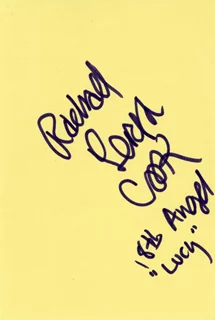 Rachael
Leigh
Cook
'8th Angel
"Lucy"